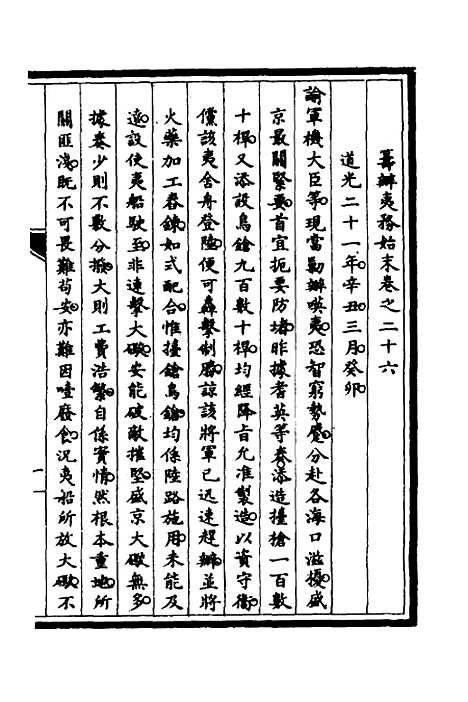 籌辦夷務始末卷之二十六
道光二十一年辛丑三月癸卯
諭軍機大臣等現當勦辦𠸄夷恐智窮勢蹙分赴各海口滋擾盛
京最關緊要首宜扼要防堵昨據耆英等奏添造擡槍一百數
十桿又添設鳥鎗九百數十桿均經降旨允准製造以資守衞
儻該夷舍舟登陸便可轟擊制勝諒該將軍已迅速趕辦並將
火藥加工舂鍊如式配合惟擡鎗鳥鎗均係陸路施用未能及
遠設使夷船駛至非連擊大礮安能破敵摧堅盛京大礮無多
據奏少則不敷分撥大則工費浩繁自係實情然根本重地所
關匪淺既不可畏難苟安亦難因噎廢食況夷船所放大礮不